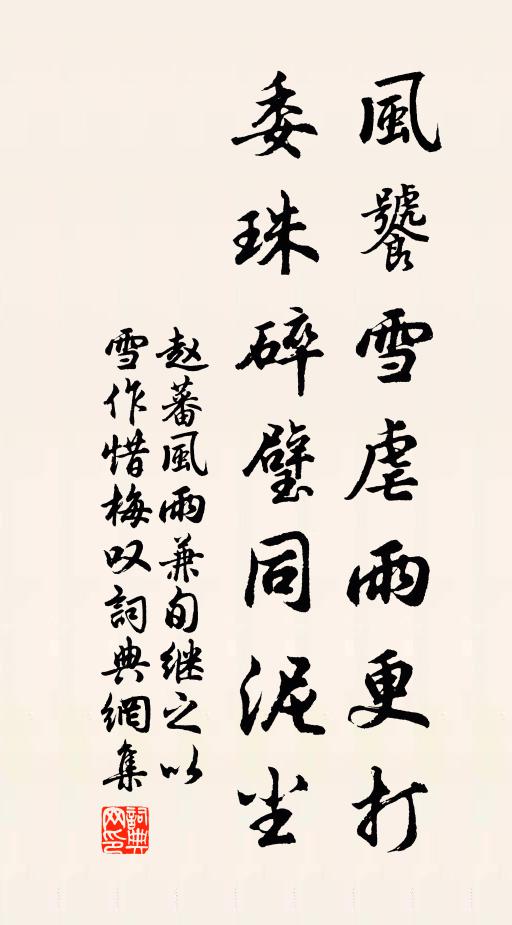 風饕雪虐雨更打
委珠碎璧同泥尘
赵蕃風雨兼旬继之以
雪作惜梅叹詞典網集
詞典网印